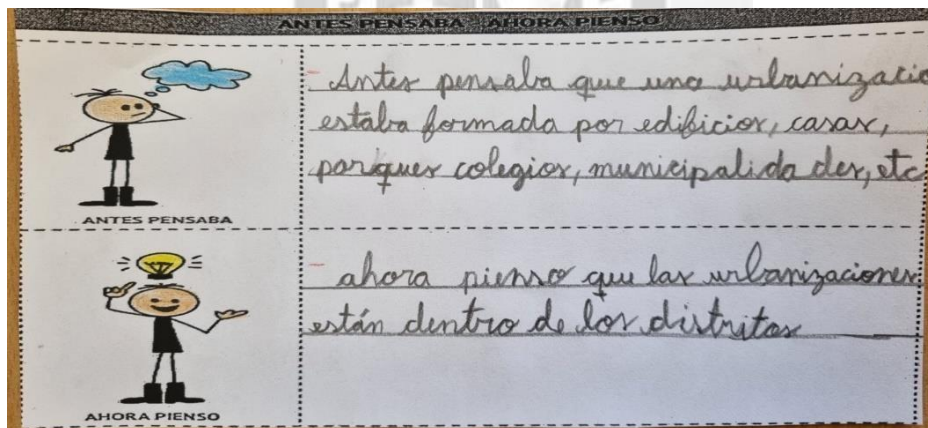 ANTES PENSABA AHORA PIENSO
Antes pensaba que una urbanizacio
estaba formada por edificios, casas,
parques colegios, municipalida des, etc
ANTES PENSABA
ahora pienso que las urbanizaciones
están dentro de los distritos
AHORA PIENSO